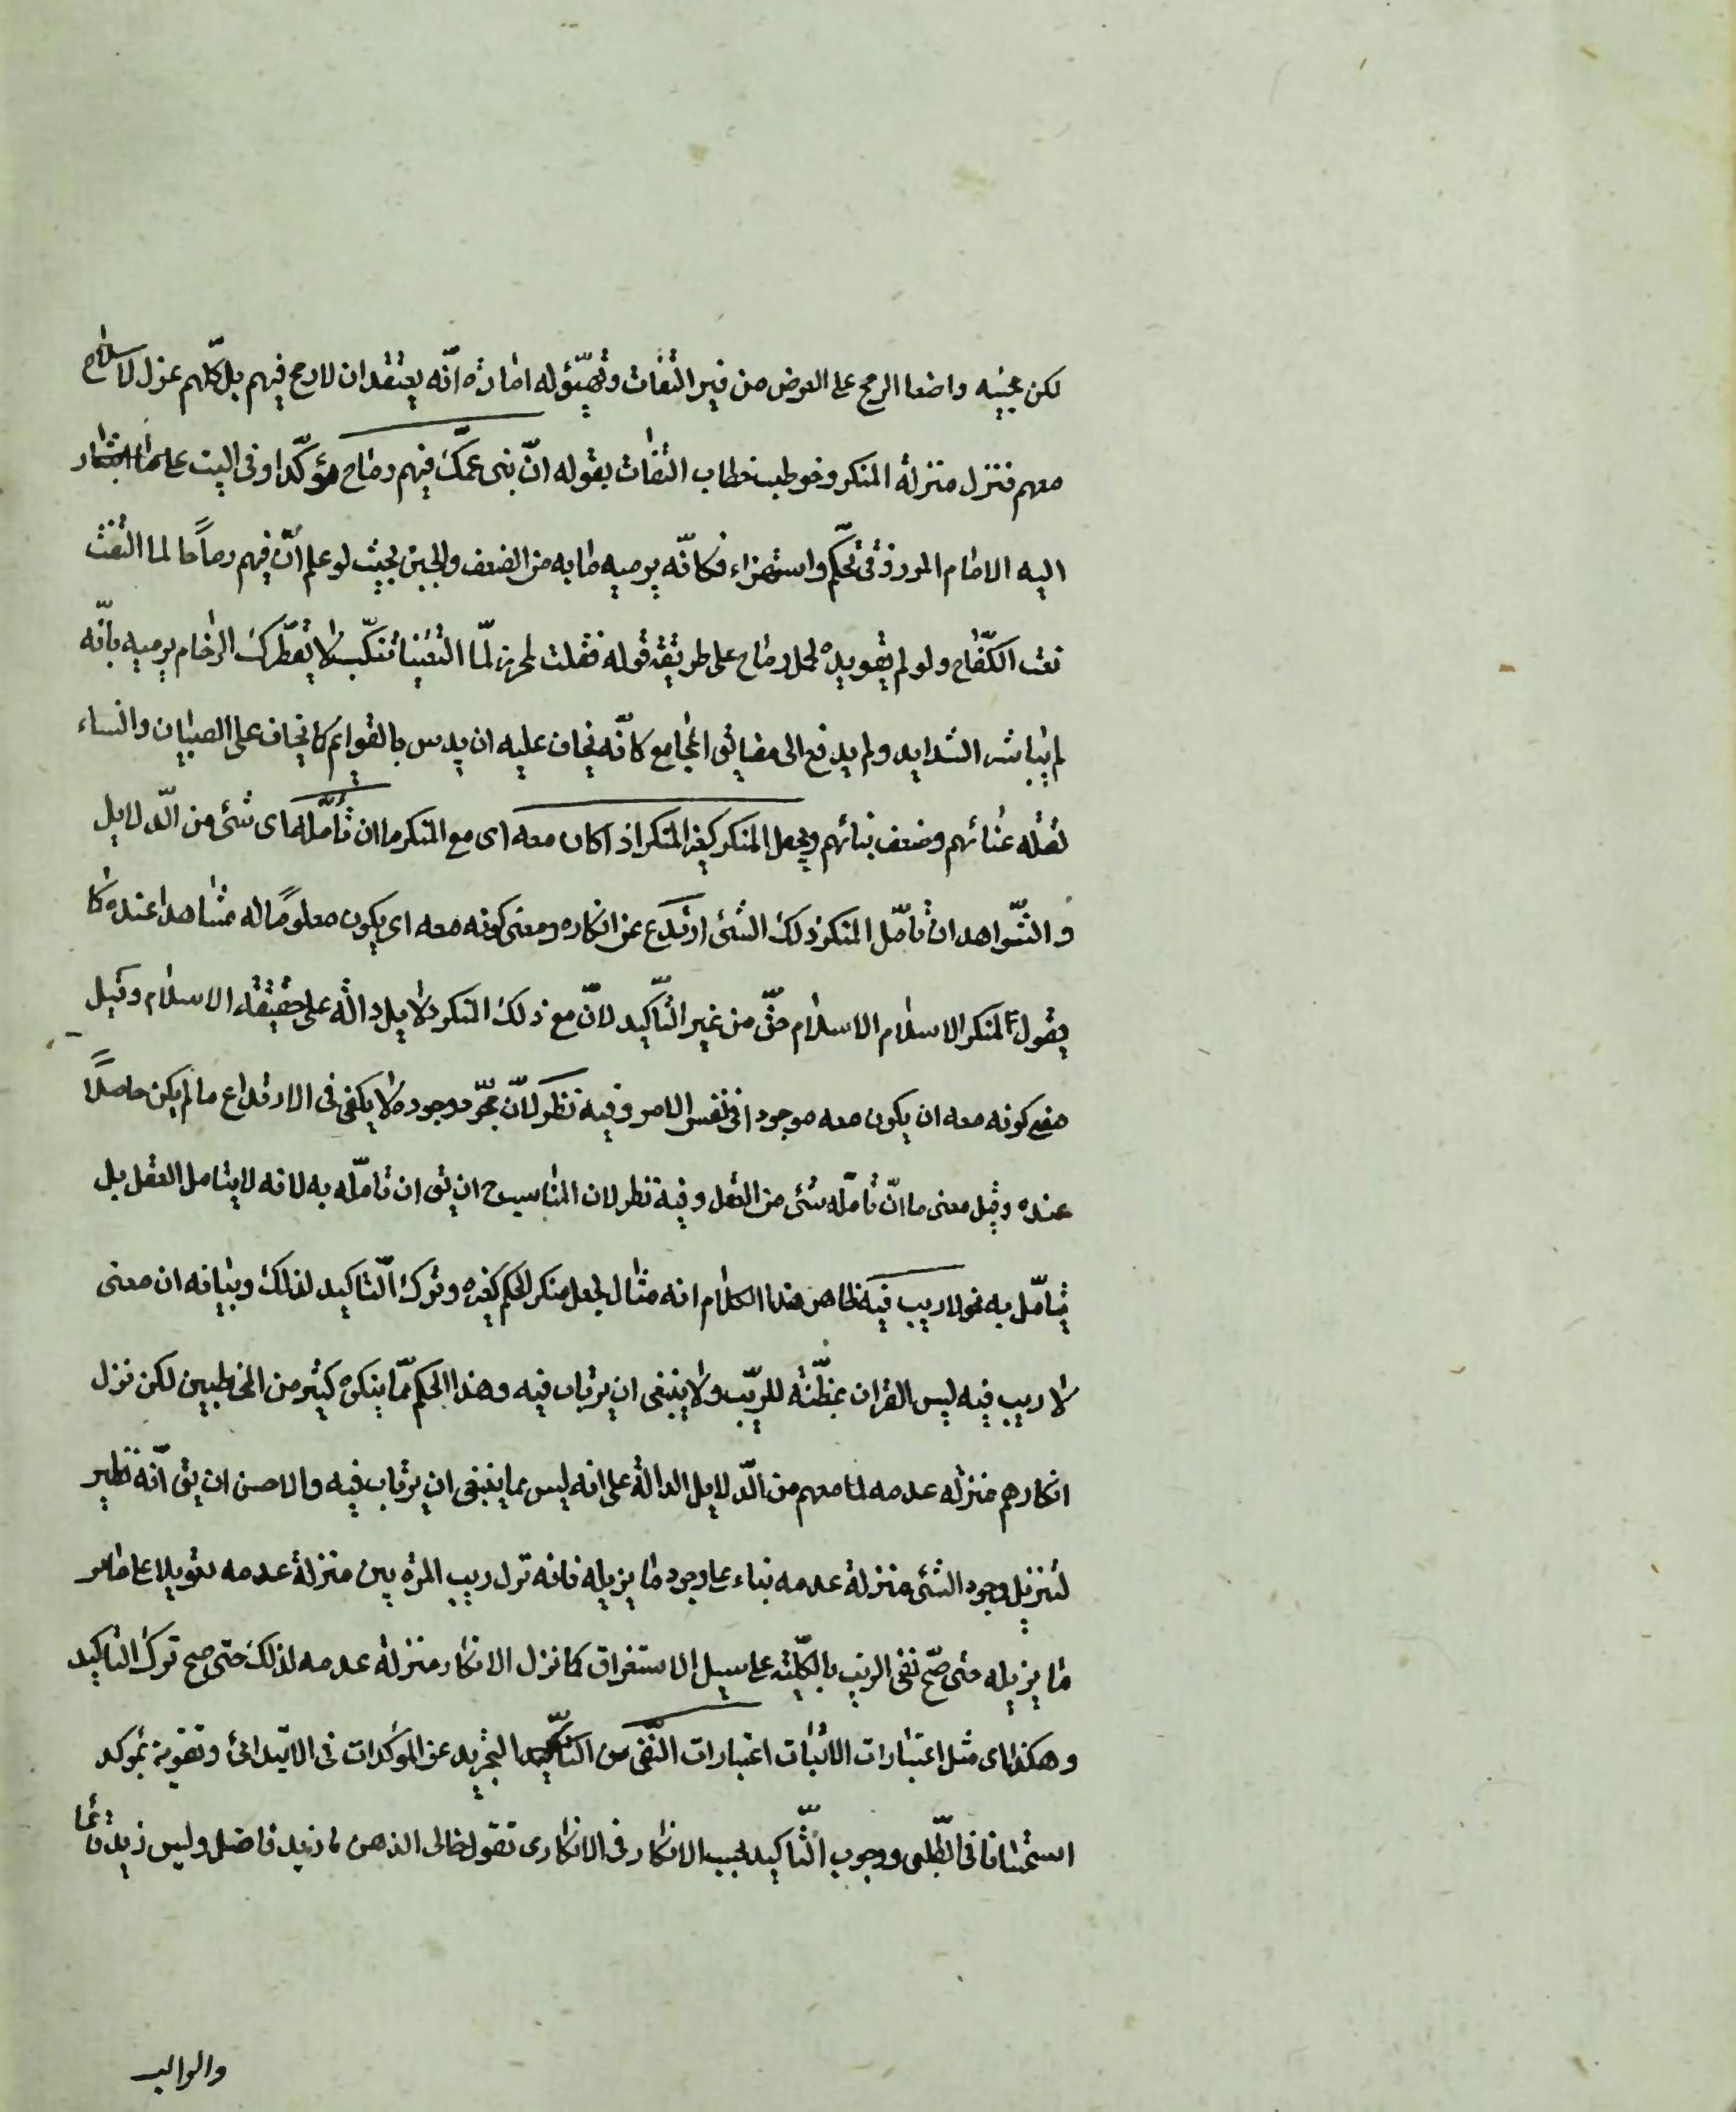 لكن مجيئه واضعا الرمح على العرض من غير التفات وتهيّؤ له امارة انّه يعتقد ان لا رمح فيهم بل كلّهم عزل لا سلاح
معهم فنزل منزلة المنكر وخوطب خطاب التفات بقوله انّ بنى عمّك فيهم رماح مؤكّدا وفى البيت على ما اشار
اليه الامام المرزوقى تهكّم واستهزاء فكانّه يرميه مابه من الضعف والجبن بحيث لو علم انّ فيهم رماحًا لما التفت
لفت الكفاح ولو لم تقو يده لحمل رماح على طريقة قوله فقلت لمحرز لمّا التقينا تنكّب لا يقطّرك الزحام يرميه بانّه
لم يباشر الشدايد ولم يدفع الى مضايق المجامع كانّه يخاف عليه ان يدس بالقوائم كما يخاف على الصبيان والنساء
لقلّة غنائهم وضعف بنائهم ويجعل المنكر كغير المنكر اذا كان معه اى مع المنكر ما ان تأمّله اى شئ من الدّلايل
و الشّواهد ان تأمّل المنكر ذلك الشئ ارتدع عن انكاره ومعنى كونه معه اى يكون معلومًا له مشاهدا عنده كما
يقول لمنكر الاسلام الاسلام حقّ من غير التّأكيد لانّ مع ذلك المنكر دلايل دالّة على حقيقة الاسلام وقيل
معنى كونه معه ان يكون معه موجودا فى نفس الامر وفيه نظر لانّ مجرّد وجوده لا يكفى فى الارتداع ما لم يكن حاصلًا
عنده وقيل معنى ما انّ تأمّله شئ من العقل وفيه نظر لان المناسب ح ان يق ان تأمّل به لانه لا يتامل العقل بل
يتأمّل به نحو لا ريب فيه ظاهر هذا الكلام انه مثال لجعل منكر الحكم كغيره وترك التّاكيد لذلك وبيانه ان معنى
لا ريب فيه ليس القران بمظنّة للرّيب ولا ينبغى ان يرتاب فيه وهذا الحكم ممّا ينكره كثير من المخاطبين لكن نزل
انكارهم منزلة عدمه لما معهم من الدّلايل الدالة على انه ليس مما ينبغى ان يرتاب فيه والاحسن ان يق انّه نظير
لتنزيل وجود الشئ منزلة عدمه بناء على وجود ما يزيله فانه نزل ريب المرتابين منزلة عدمه تعويلا على
ما يزيله حتى صحّ نفى الريب بالكلّية على سبيل الاستغراق كما نزل الانكار منزلة عدمه لذلك حتى صح ترك التاكيد
و هكذا اى مثل اعتبارات الاثبات اعتبارات النّفى من التجريد عن المؤكدات فى الابتدائى وتقوية بمؤكد
استحسانا فى الطّلبى ووجوب التّأكيد بحسب الانكار فى الانكارى تقول لخالى الذهن ما زيد فاضل وليس زيد قائما